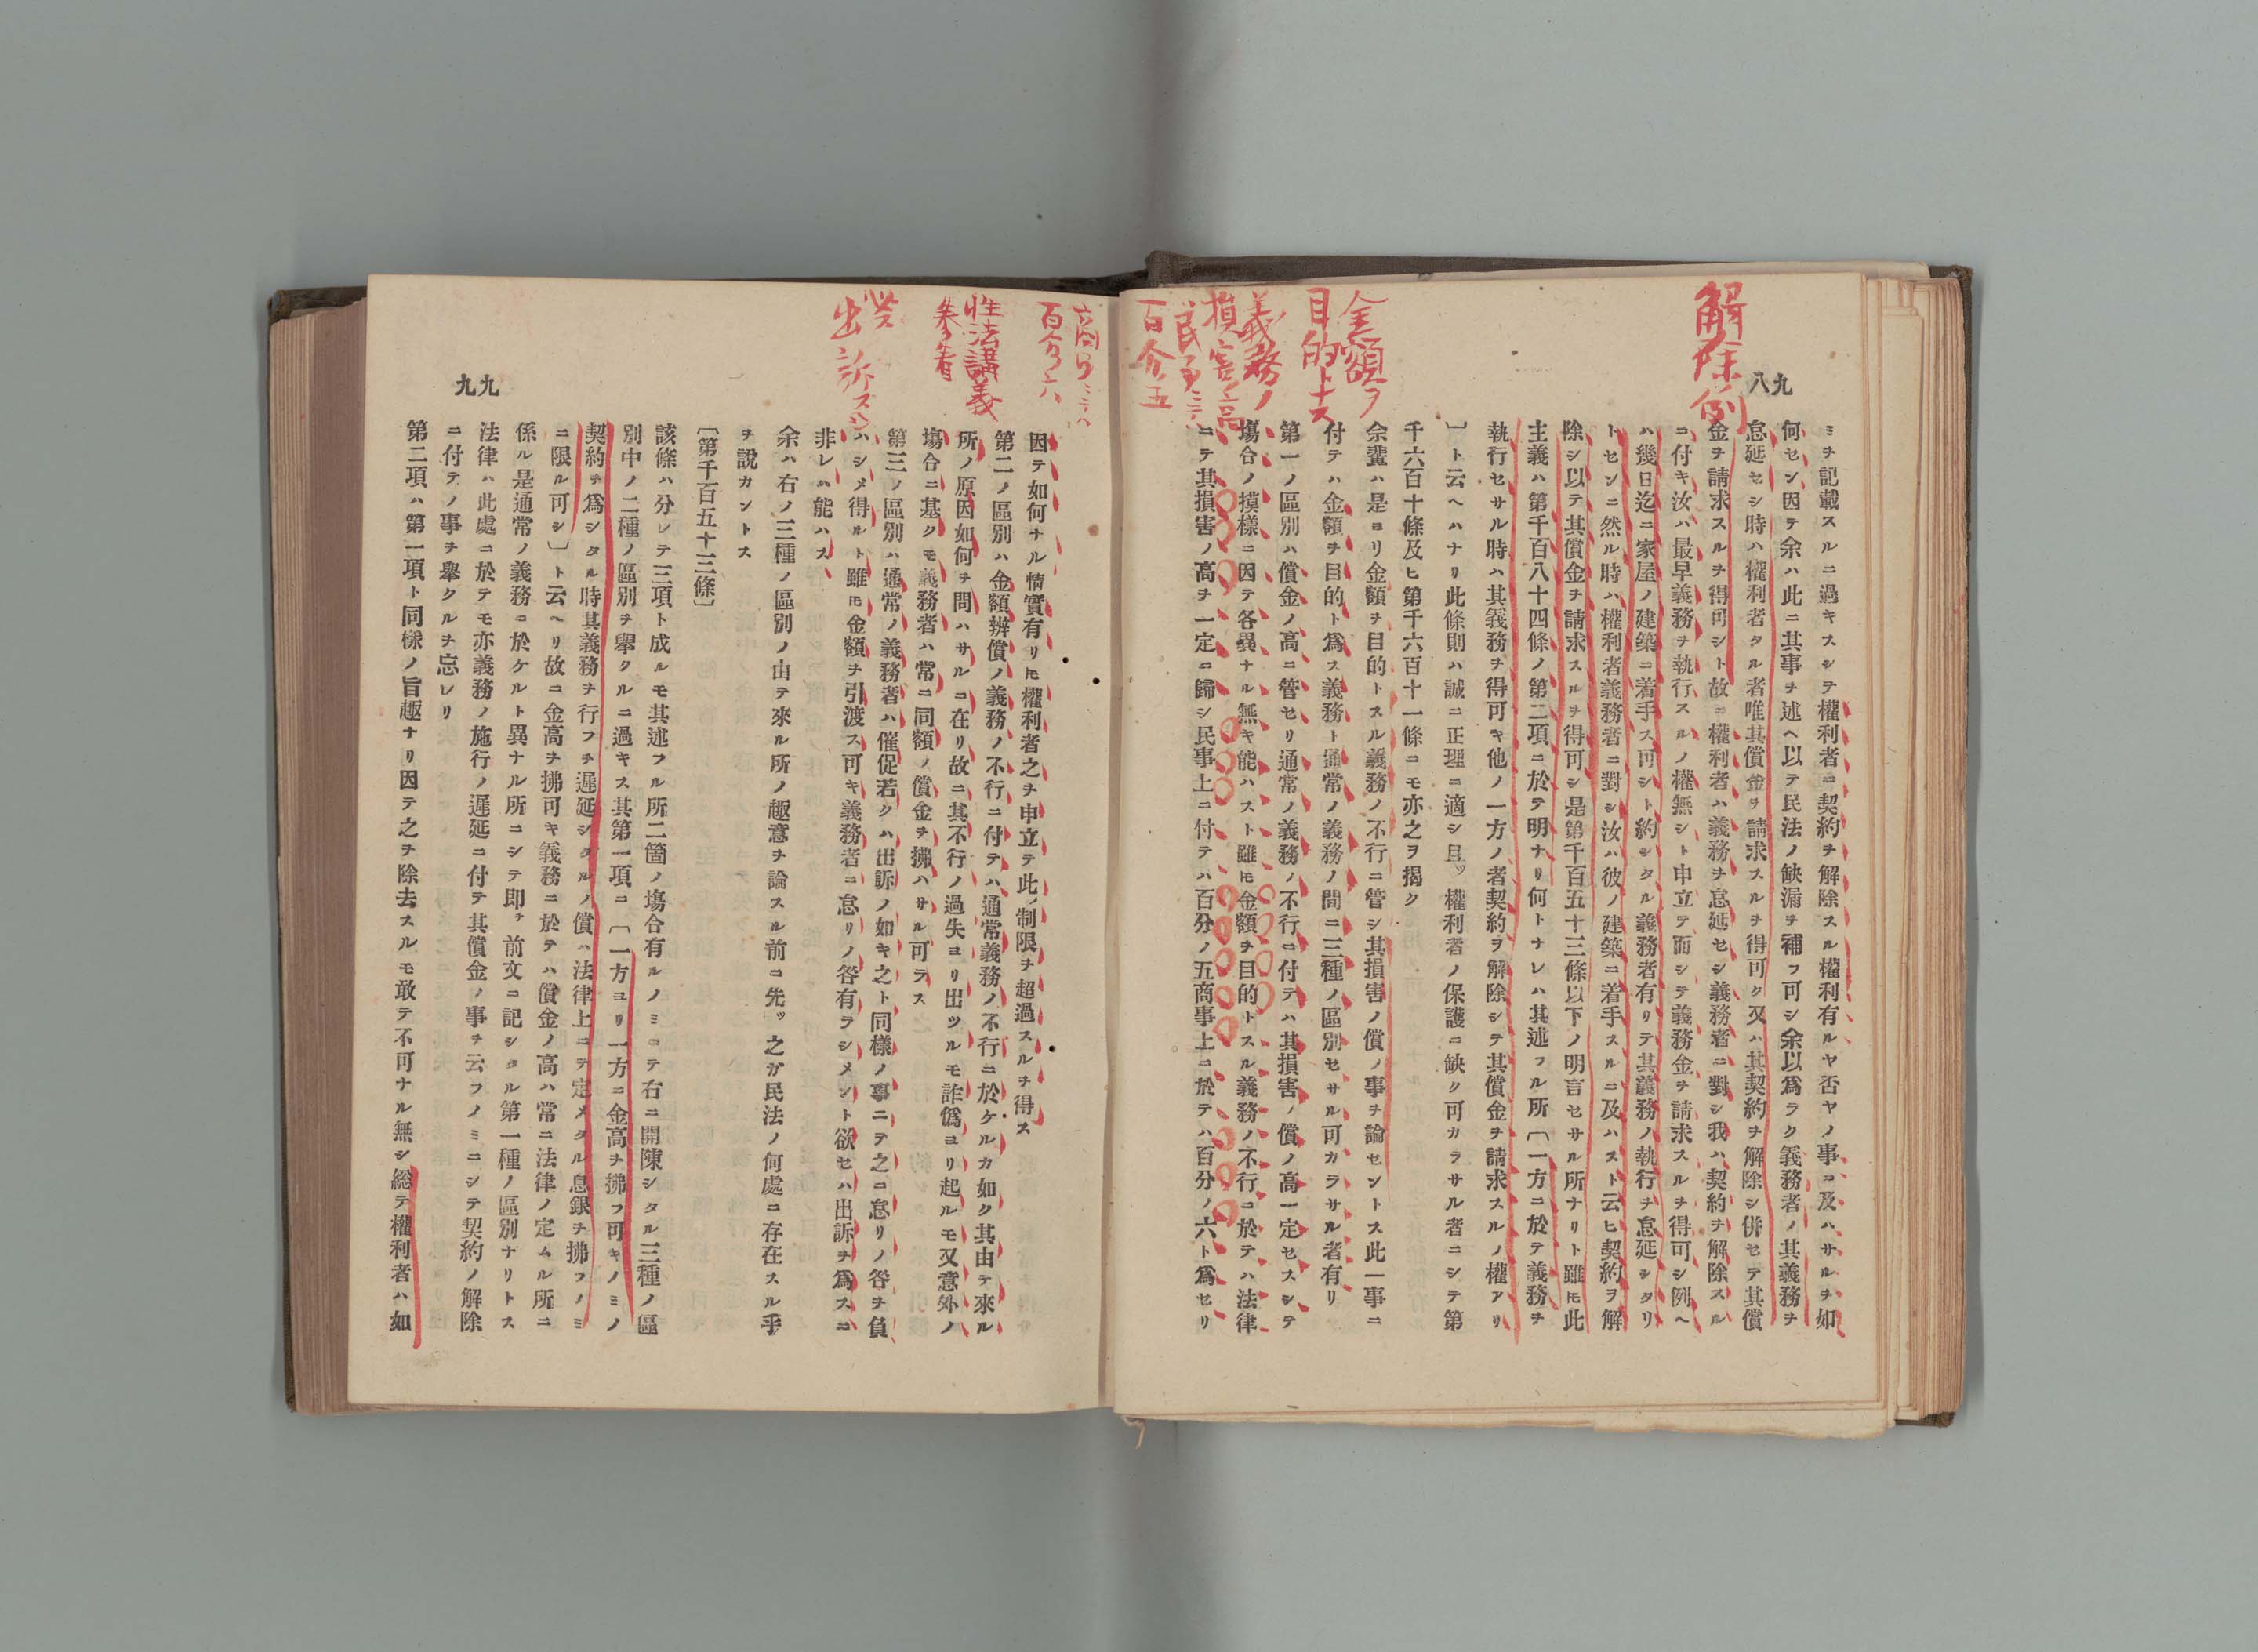 解除例
九八
ミヲ記載スルニ過キスシテ權利者ニ契約ヲ解除スル權利有ルヤ否ヤノ事ニ及ハサルヲ如
何セン因テ余ハ此ニ其事ヲ述ヘ以テ民法ノ缺漏ヲ補フ可シ余以爲ラク義務者ノ其義務ヲ
怠延セシ時ハ權利者タル者唯其償金ヲ請求スルヲ得可ク又ハ其契約ヲ解除シ併セテ其償
金ヲ請求スルヲ得可シト故ニ權利者ハ義務ヲ怠延セシ義務者ニ對シ我ハ契約ヲ解除スル
ニ付キ汝ハ最早義務ヲ執行スルノ權無シト申立テ而シテ義務金ヲ請求スルヲ得可シ例ヘ
ハ幾日迄ニ家屋ノ建築ニ着手ス可シト約シタル義務者有リテ其義務ノ執行ヲ怠延シタリ
トセンニ然ル時ハ權利者義務者ニ對シ汝ハ彼ノ建築ニ着手スルニ及ハスト云ヒ契約ヲ解
除シ以テ其償金ヲ請求スルヲ得可シ是第千百五十三條以下ノ明言セサル所ナリト雖𪜈此
主義ハ第千百八十四條ノ第二項ニ於テ明ナリ何トナレハ其述フル所〔一方ニ於テ義務ヲ
執行セサル時ハ其義務ヲ得可キ他ノ一方ノ者契約ヲ解除シテ其償金ヲ請求スルノ權アリ
〕ト云ヘハナリ此條則ハ誠ニ正理ニ適シ且ツ權利者ノ保護ニ缺ク可カラサル者ニシテ第
千六百十條及ヒ第千六百十一條ニモ亦之ヲ揭ク
金額ヲ
目的トス
義務ノ
損害ノ高
民事ニテハ
百分五
余輩ハ是ヨリ金額ヲ目的トスル義務ノ不行ニ管シ其損害ノ償ノ事ヲ論セントス此一事ニ
付テハ金額ヲ目的ト爲ス義務ト通常ノ義務ノ間ニ三種ノ區別セサル可カラサル者有リ
第一ノ區別ハ償金ノ高ニ管セリ通常ノ義務ノ不行ニ付テハ其損害ノ償ノ高一定セスシテ
塲合ノ摸樣ニ因テ各異ナル無キ能ハスト雖𪜈金額ヲ目的トスル義務ノ不行ニ於テハ法律
ニテ其損害ノ高ヲ一定ニ歸シ民事上ニ付テハ百分ノ五商事上ニ於テハ百分ノ六ト爲セリ
百分六
性法講義
参看
必ス
出訴スヘシ
因テ如何ナル情實有リ𪜈權利者之ヲ申立テ此制限ヲ超過スルヲ得ス
第二ノ區別ハ金額辨償ノ義務ノ不行ニ付テハ通常義務ノ不行ニ於ケルカ如ク其由テ來ル
所ノ原因如何ヲ問ハサルニ在リ故ニ其不行ノ過失ヨリ出ツルモ詐僞ヨリ起ルモ又意外ノ
塲合ニ基クモ義務者ハ常ニ同額ノ償金ヲ拂ハサル可ラス
第三ノ區別ハ通常ノ義務者ハ催促若クハ出訴ノ如キ之ト同樣ノ事ニテ之ニ怠リノ咎ヲ負
ハシメ得ルト雖𪜈金額ヲ引渡ス可キ義務者ニ怠リノ咎有ラシメント欲セハ出訴ヲ爲スニ
非レハ能ハス
余ハ右ノ三種ノ區別ノ由テ來ル所ノ趣意ヲ論スル前ニ先ツ之カ民法ノ何處ニ存在スル乎
ヲ說カントス
〔第千百五十三條〕
該條ハ分レテ三項ト成ルモ其述フル所二箇ノ塲合有ルノミニテ右ニ開陳シタル三種ノ區
別中ノ二種ノ區別ヲ擧クルニ過キス其第一項ニ〔一方ヨリ一方ニ金高ヲ拂フ可キノミノ
契約ヲ爲シタル時其義務ヲ行フヲ遲延シタルノ償ハ法律上ニテ定メタル息銀ヲ拂フノミ
ニ限ル可シ〕ト云ヘリ故ニ金高ヲ拂可キ義務ニ於テハ償金ノ高ハ常ニ法律ノ定ムル所ニ
係ル是通常ノ義務ニ於ケルト異ナル所ニシテ即チ前文ニ記シヨル第一種ノ區別ナリトス
法律ハ此處ニ於テモ亦義務ノ施行ノ遲延ニ付テ其償金ノ事ヲ云フノミニシテ契約ノ解除
ニ付テノ事ヲ擧クルヲ忘レリ
第二項ハ第一項ト同樣ノ旨趣ナリ因テ之ヲ除去スルモ敢テ不可ナル無シ総テ權利者ハ如
九九